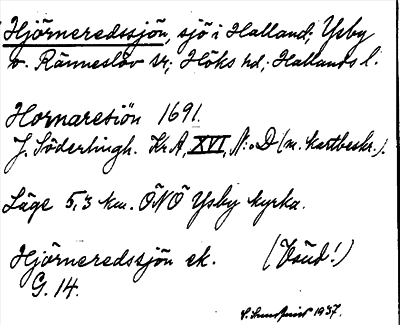 Hjörneredssjön, sjö i Halland; Ysby
o. Ränneslöv sr; Höks hd; Hallands l.
Hornaresiön 1691.
J. Söderlingh. Kr A, XVI, N:o D (m. kartbeskr.).
Läge 5,3 km. ÖNÖ Ysby kyrka.
Hjörneredssjön ek. (Vsud!)
G. 14.
1937.